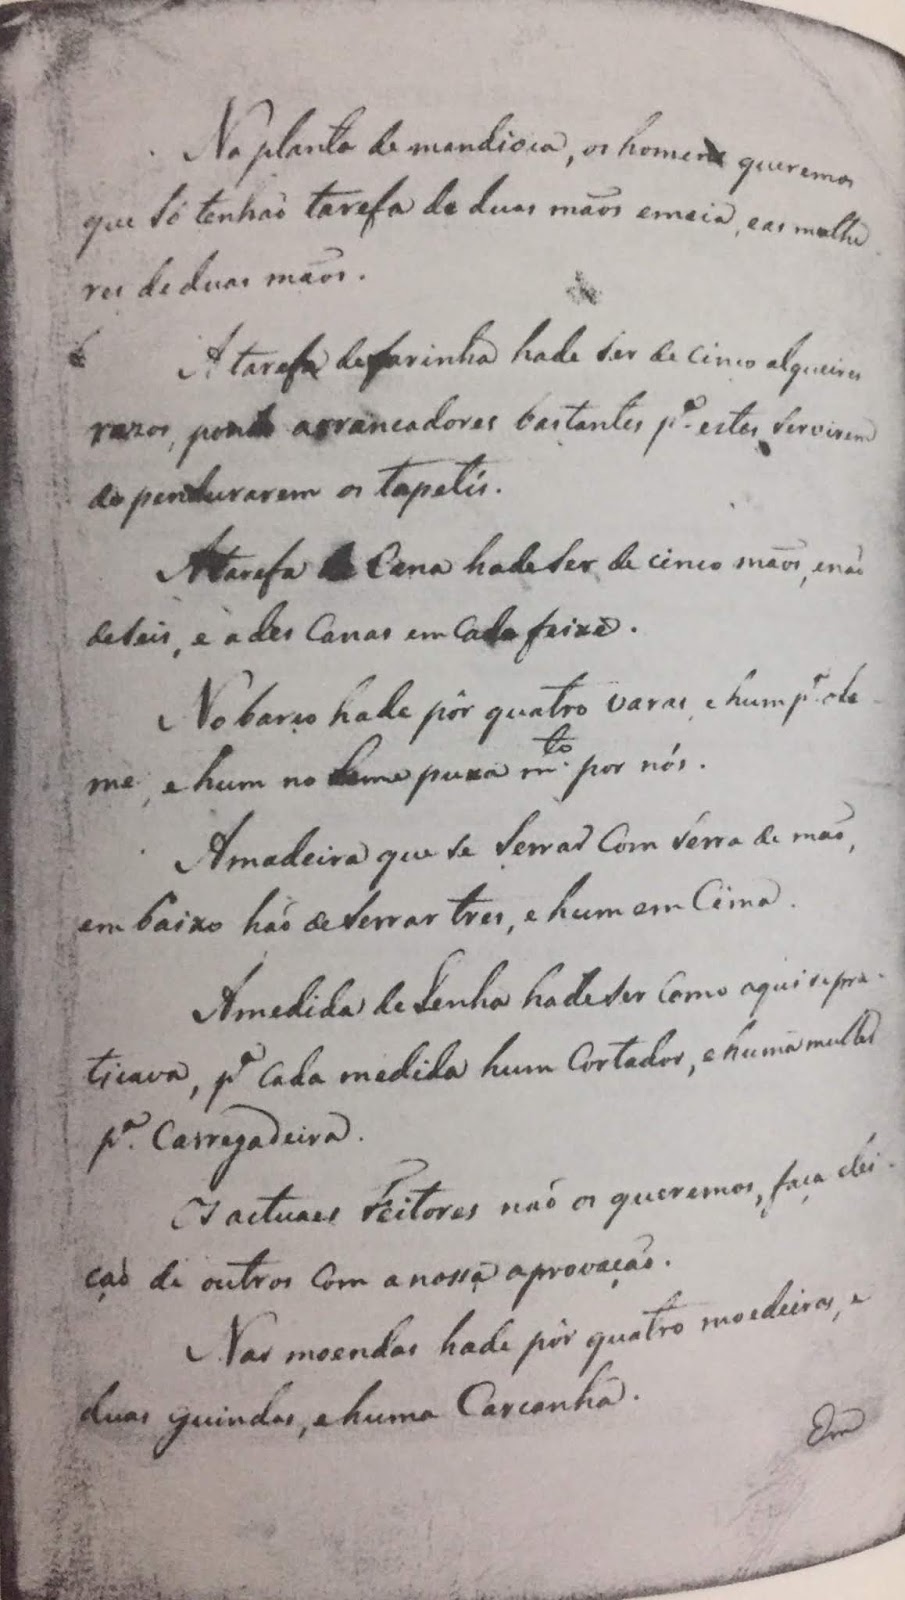 Na planta de mandioca, os homens queremos
que só tenhaõ tarefa de duas maõs emeia, eas mulhe
res de duas maõs.
A tarefa de farinha hade ser de cinco alqueires
razos, pondo arrancadores bastantes pª estes servirem
de pendurarem os tapetis.
A tarefa de Cana hade ser de cinco maõs, enaõ
deseis, e a des Canas em Cada feixe.
No barco hade pôr quatro varas, e hum pª ole-
me, e hum no leme puxa mto por nós.
A madeira que se serrar Com serra de maõ,
em baixo haõ de serrar tres, e hum em Cima.
A medida de Lenha hade ser Como aqui se pra-
ticava, pª Cada medida hum Cortador, e huma mulher
pª Carregadeira.
Os actuaes Feitores naõ os queremos, faça elei-
çaõ de outros Com a nossa aprovaçaõ.
Nas moendas hade pôr quatro moedeiras, e
duas guindas, e huma Carcanha.
Em